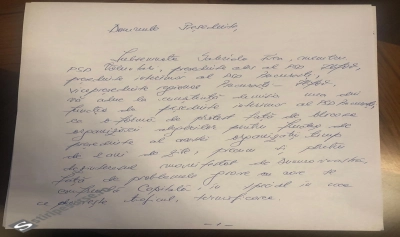 Domnule Președinte,
Subsemnata Gabriela Firea, membru
PSD Voluntari, președinte ales al PSD Ilfov,
președinte interimar al PSD București,
vicepreședinte regiunea București - Ilfov,
vă aduc la cunoștință demisia mea din
funcția de președinte interimar al PSD București,
ca o formă de protest față de blocarea
organizării alegerilor pentru funcția de
președinte al acestei organizații timp
de 2 ani de zile, precum și pentru
dezinteresul manifestat de dumneavoastră
față de problemele grave cu care se
confruntă Capitala, în special în ceea
ce privește traficul, termoficarea
- 1 -